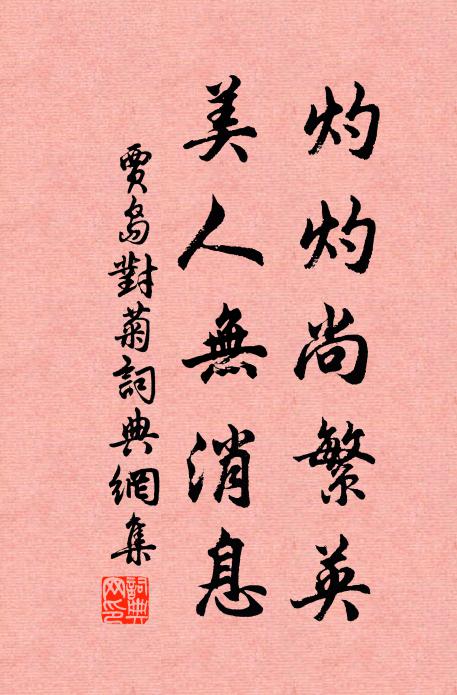 灼灼尚繁英
美人無消息
賈島對菊詞典網集
詞典網印